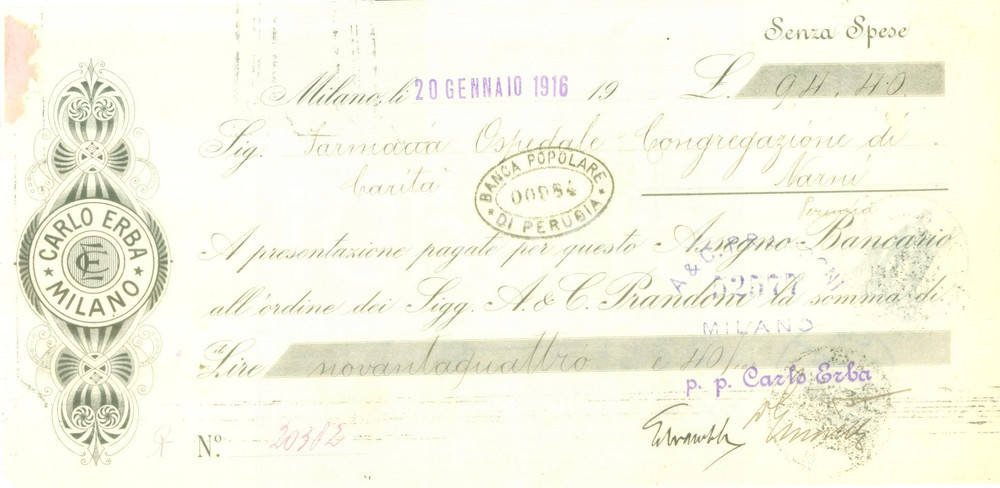 Senza Spese
Milano, li 20 GENNAIO 1916 19 L. 94.40
Sig. Farmacia Ospedale Congregazione di
Carità Narni
Perugia
BANCA POPOLARE
00084
DI PERUGIA
A presentazione pagate per questo Assegno Bancario
all'ordine dei Sigg. A. & C. Prandoni la somma di
A. & C. PRANDONI
52577
MILANO
Lire novantaquattro e 40/
p. p. Carlo Erba
N.º 20382
CARLO ERBA
CE
MILANO